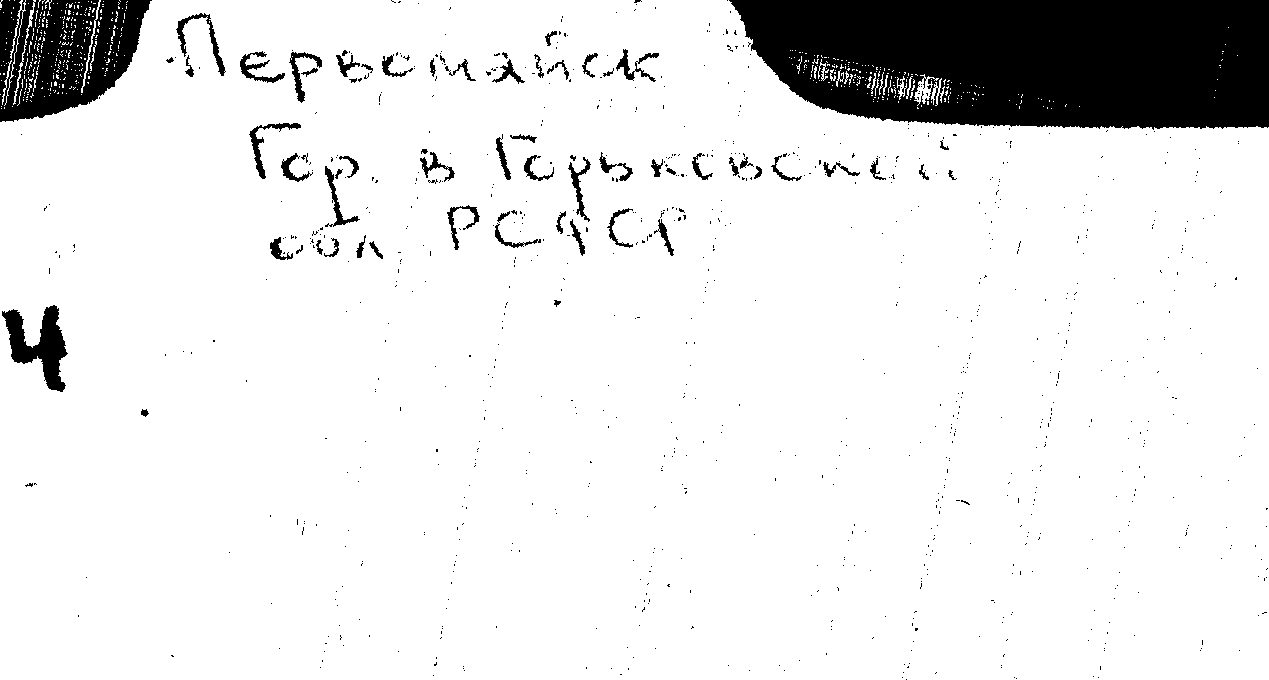 Первомайск
Гор. в Горьковской
обл РСФСР
4